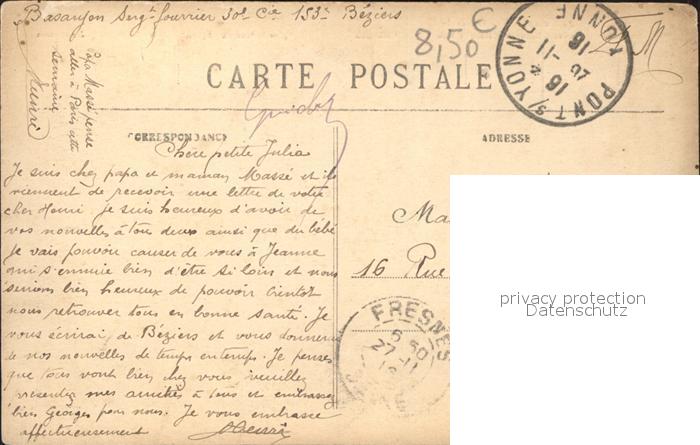 Basançon Sergt fourrier 30e Cie 153e Béziers
8,50 €
Papa Massé pense
aller à Paris cette
semaine
Henri
CARTE POSTALE
PONT S/YONNE
YONNE
16
11
16
CORRESPONDANCE
ADRESSE
Chère petite Julia
Je suis chez papa et maman Massé et ils
viennent de recevoir une lettre de votre
cher Henri je suis heureux d'avoir de
vos nouvelles à tous deux ainsi que du bébé
Je vais pouvoir causer de vous à Jeanne
qui s'ennuie bien d'être si loin et nous
serions bien heureux de pouvoir bientot
nous retrouver tous en bonne santé. Je
vous écrirai de Béziers et vous donnerai
de nos nouvelles de temps en temps. Je penses
que tous vont bien chez vous veuillez
présenter mes amitiés à tous et embrassez
bien Georges pour nous. Je vous embrasse
affectueusement Henri
Ma
16 Rue
FRESNES
6 50
27-11
privacy protection
Datenschutz